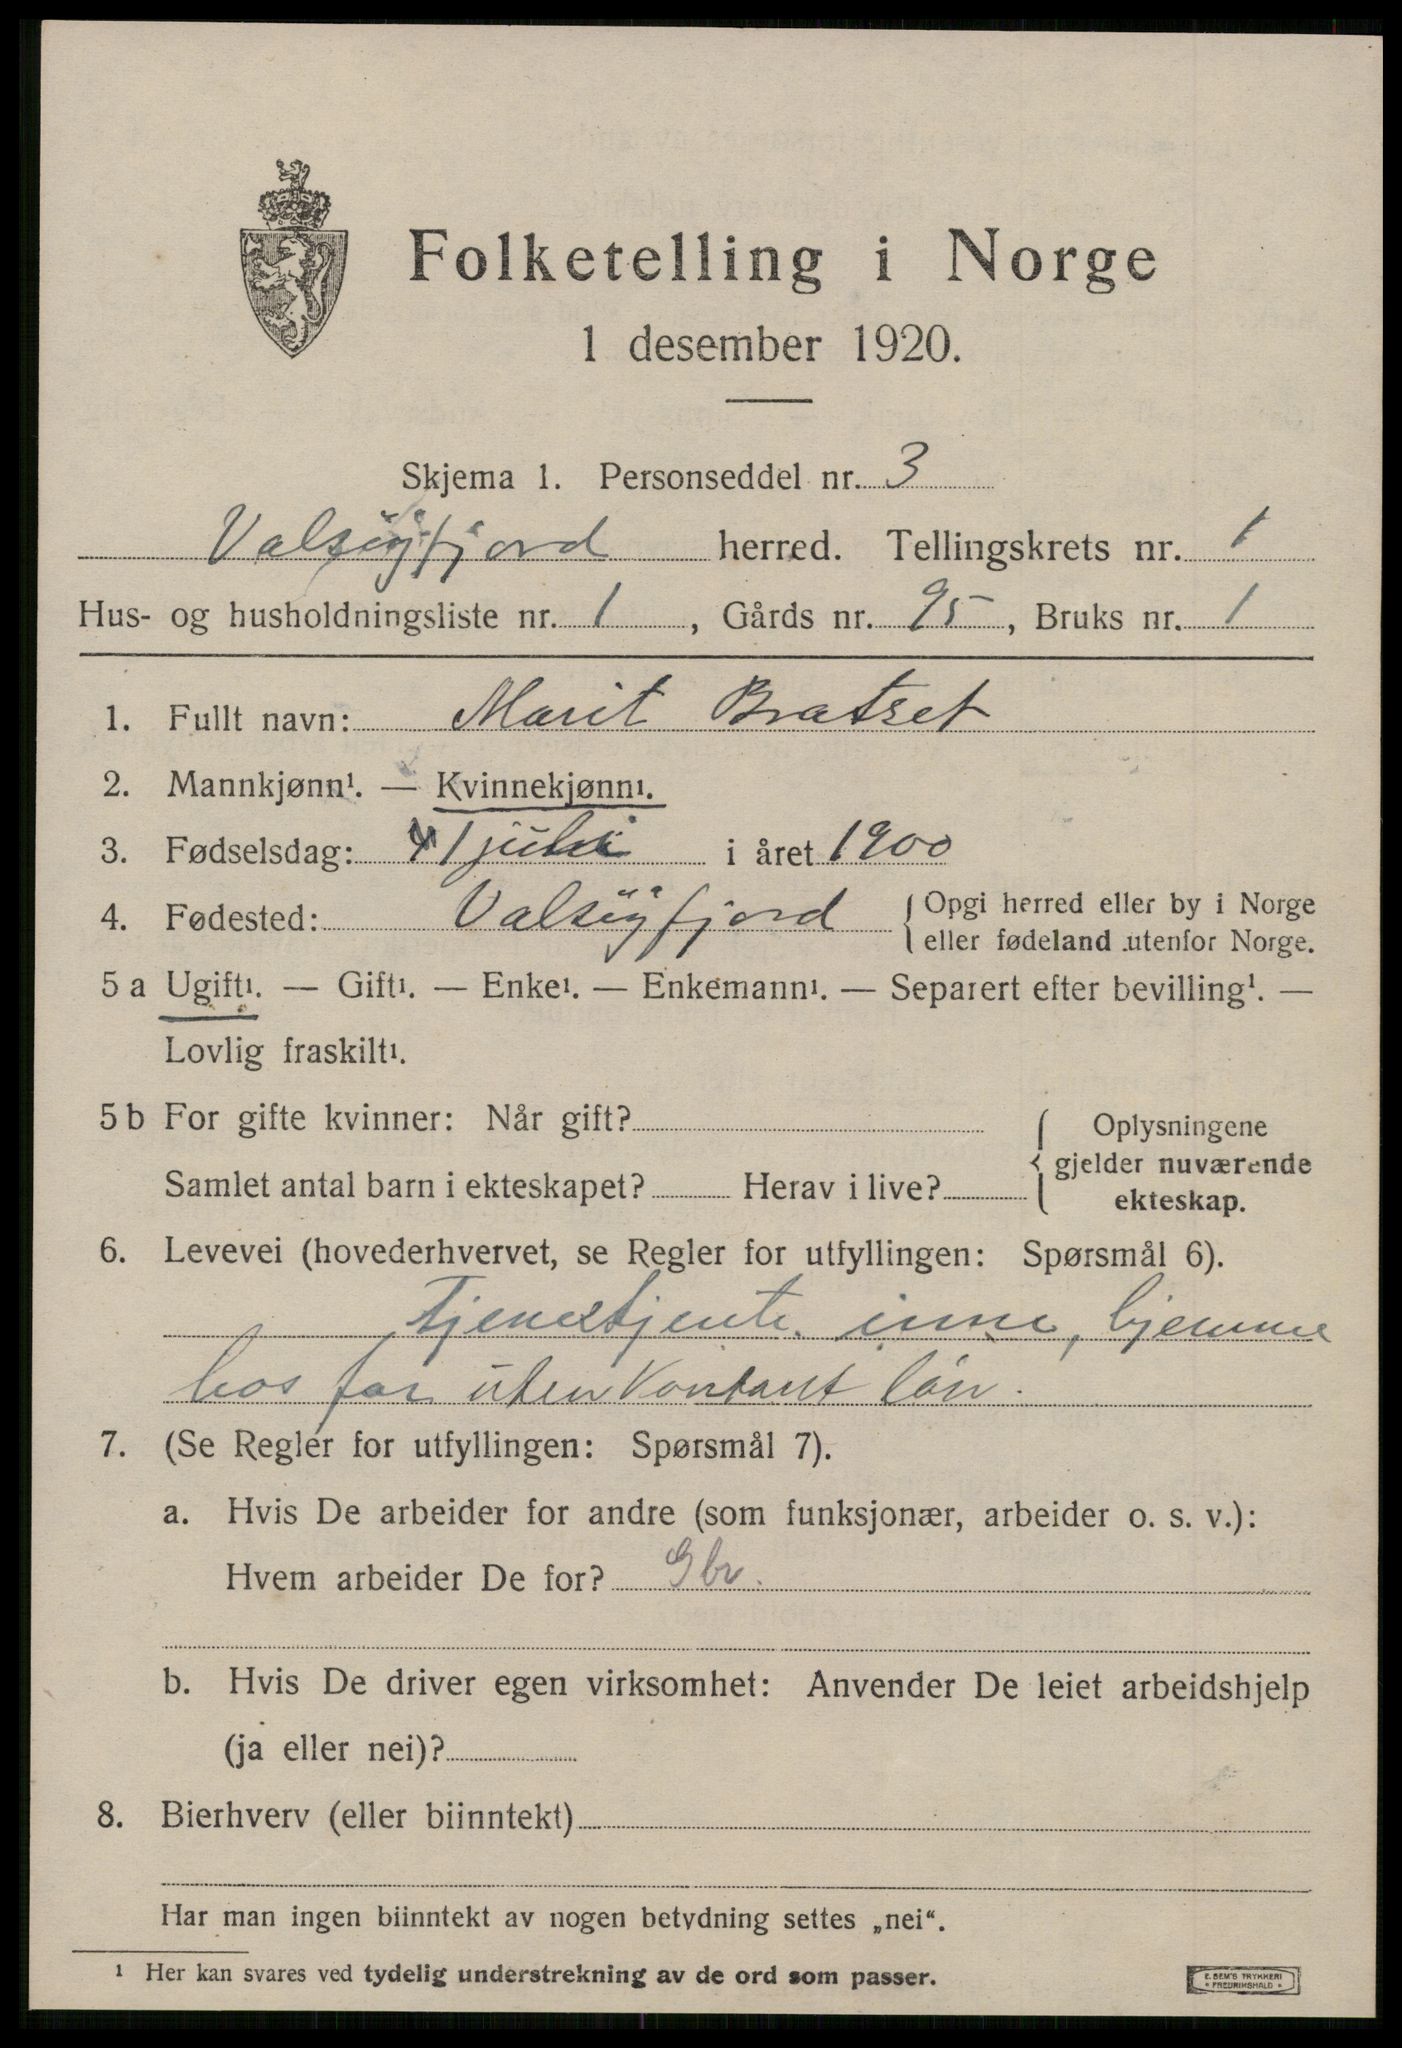 Folketelling i Norge
1 desember 1920.
Skjema 1. Personseddel nr. 3
Valsøyfjord herred. Tellingskrets nr. 1
Hus- og husholdningsliste nr. 1, Gårds nr. 95, Bruks nr. 1
1. Fullt navn: Marit Bratset
2. Mannkjønn¹. — Kvinnekjønn¹.
3. Fødselsdag: juli i året 1900
4. Fødested: Valsøyfjord { Opgi herred eller by i Norge
eller fødeland utenfor Norge.
5 a Ugift¹. — Gift¹. — Enke¹. — Enkemann¹. — Separert efter bevilling¹. —
Lovlig fraskilt¹.
5 b For gifte kvinner: Når gift? { Oplysningene
gjelder nuværende
ekteskap.
Samlet antal barn i ekteskapet? Herav i live?
6. Levevei (hovederhvervet, se Regler for utfyllingen: Spørsmål 6).
Tjenestjente. inne, hjemme
hos far uten kontant løn.
7. (Se Regler for utfyllingen: Spørsmål 7).
a. Hvis De arbeider for andre (som funksjonær, arbeider o. s. v.):
Hvem arbeider De for? Gbr.
b. Hvis De driver egen virksomhet: Anvender De leiet arbeidshjelp
(ja eller nei)?
8. Bierhverv (eller biinntekt)
Har man ingen biinntekt av nogen betydning settes „nei“.
¹ Her kan svares ved tydelig understrekning av de ord som passer.
E. SEM'S TRYKKERI
* FREDRIKSHALD *